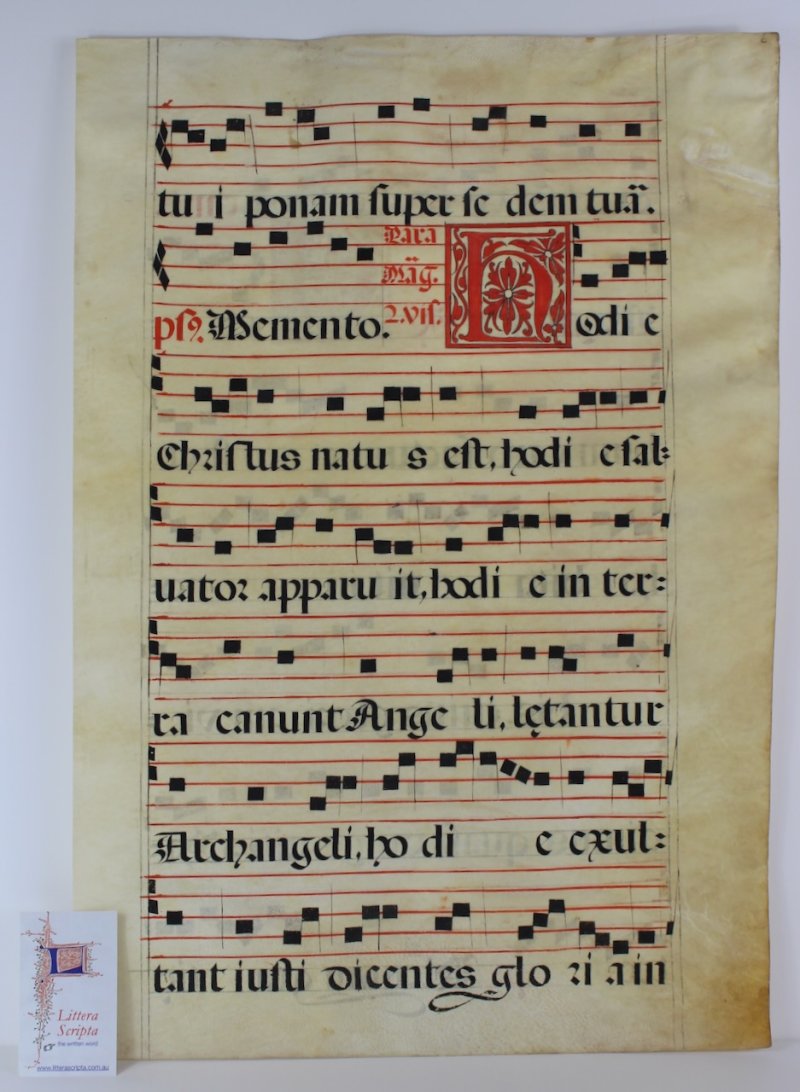 tu i ponam super se dem tuā.
Para
Māg.
2. vis.
ps. Memento. Hodi e
Christus natu s est, hodi e sal=
uator apparu it, hodi e in ter=
ra canunt Ange li, lętantur
Archangeli, ho di e exul=
tant iusti dicentes glo ri a in
Littera
Scripta
the written word
www.litterascripta.com.au